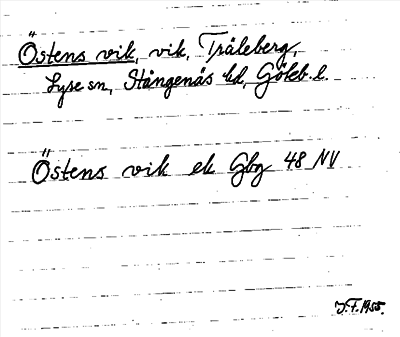 Östens vik, vik, Tråleberg,
Lyse sn, Stångenäs hd, Göteb. l.
Östens vik ek Gbg 48 NV
J.F. 1955.